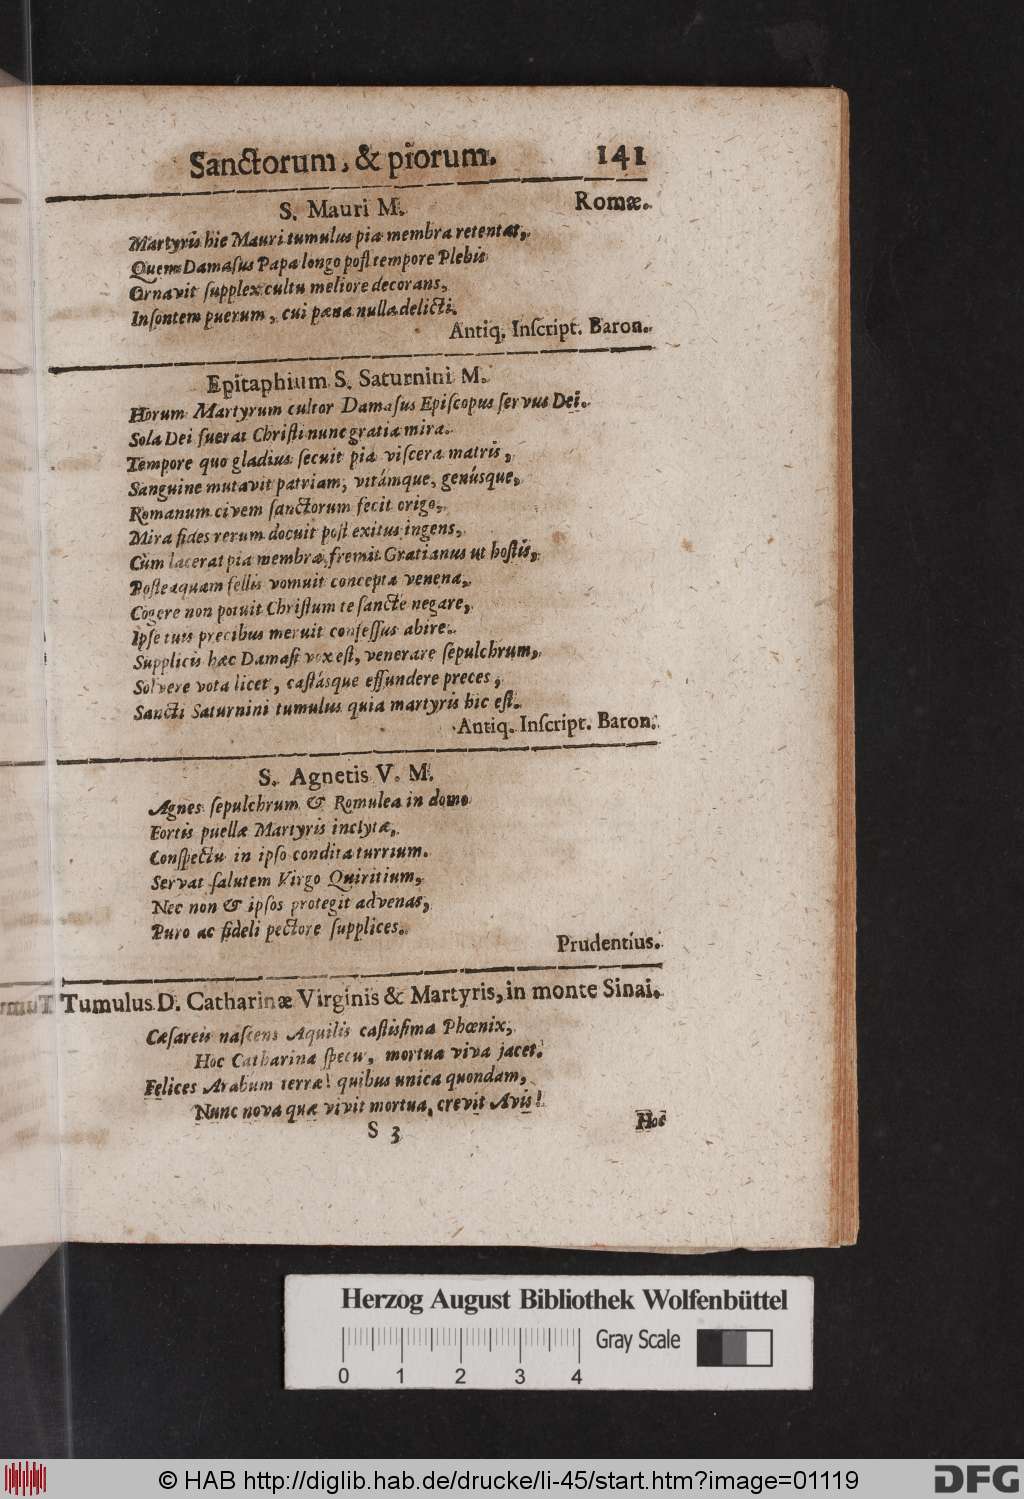 Sanctorum, & piorum. 141
S. Mauri M. Romæ.
Martyris hic Mauri tumulus pia membra retentat,
Quem Damaſus Papa longo poſt tempore Plebis
Ornavit ſupplex cultu meliore decorans,
Inſontem puerum, cui pæna nulla delicti.
Antiq. Inſcript. Baron.
Epitaphium S. Saturnini M.
Horum Martyrum cultor Damaſus Epiſcopus ſervus Dei.
Sola Dei fuerat Chriſti nunc gratia mira.
Tempore quo gladius ſecuit pia viſcera matris,
Sanguine mutavit patriam, vitámque, genúsque,
Romanum civem ſanctorum fecit origo,
Mira fides rerum docuit poſt exitus ingens,
Cùm lacerat pia membra, fremit Gratianus ut hoſtis,
Poſteaquam fellis vomuit concepta venena,
Cogere non potuit Chriſtum te ſancte negare,
Ipſe tuis precibus meruit confeſſus abire.
Supplicis hæc Damaſi vox eſt, venerare ſepulchrum,
Solvere vota licet, caſtásque effundere preces,
Sancti Saturnini tumulus quia martyris hic eſt.
Antiq. Inſcript. Baron.
S. Agnetis V. M.
Agnes ſepulchrum & Romulea in domo
Fortis puellæ Martyris inclytæ,
Conſpectu in ipſo condita turrium.
Servat ſalutem Virgo Quiritium,
Nec non & ipſos protegit advenas,
Puro ac fideli pectore ſupplices.
Prudentius.
Tumulus D. Catharinæ Virginis & Martyris, in monte Sinai.
Cæſareis naſcens Aquilis caſtiſſima Phœnix,
Hoc Catharina ſpecu, mortua viva jacet.
Felices Arabum terræ! quibus unica quondam,
Nunc nova quæ vivit mortua, crevit Avis!
S 3 Hoc
Herzog August Bibliothek Wolfenbüttel
Gray Scale
0 1 2 3 4
© HAB http://diglib.hab.de/drucke/li-45/start.htm?image=01119
DFG